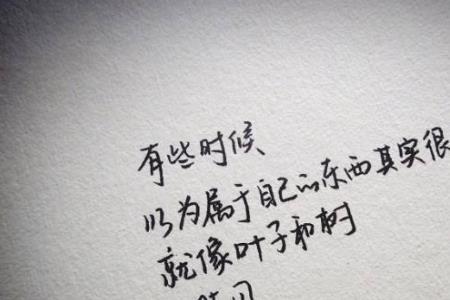 有些时候
以为属于自己的东西其实很
就像叶子和树